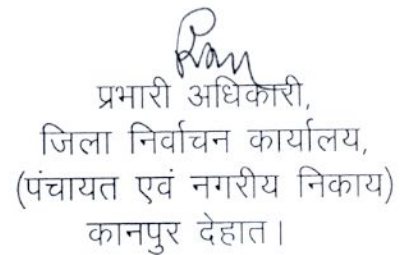 प्रभारी अधिकारी,
जिला निर्वाचन कार्यालय,
(पंचायत एवं नगरीय निकाय)
कानपुर देहात।